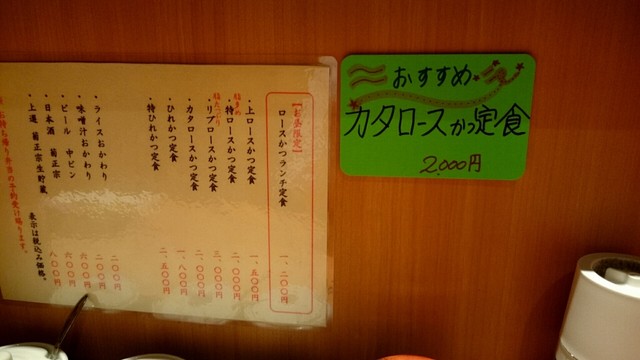 おすすめ
カタロースかつ定食
2,000円
【お昼限定】
ロースかつランチ定食 一、二〇〇円
・上ロースかつ定食 一、五〇〇円
・特ロースかつ定食 二、〇〇〇円
・リブロースかつ定食 三、〇〇〇円
・カタロースかつ定食 二、〇〇〇円
・ひれかつ定食 一、八〇〇円
・特ひれかつ定食 二、五〇〇円
・ライスおかわり 二〇〇円
・味噌汁おかわり 二〇〇円
・ビール 中ビン 六〇〇円
・日本酒 菊正宗生貯蔵 六〇〇円
・上選 菊正宗 八〇〇円
表示は税込み価格。
お持ち帰り弁当の予約受け賜ります。